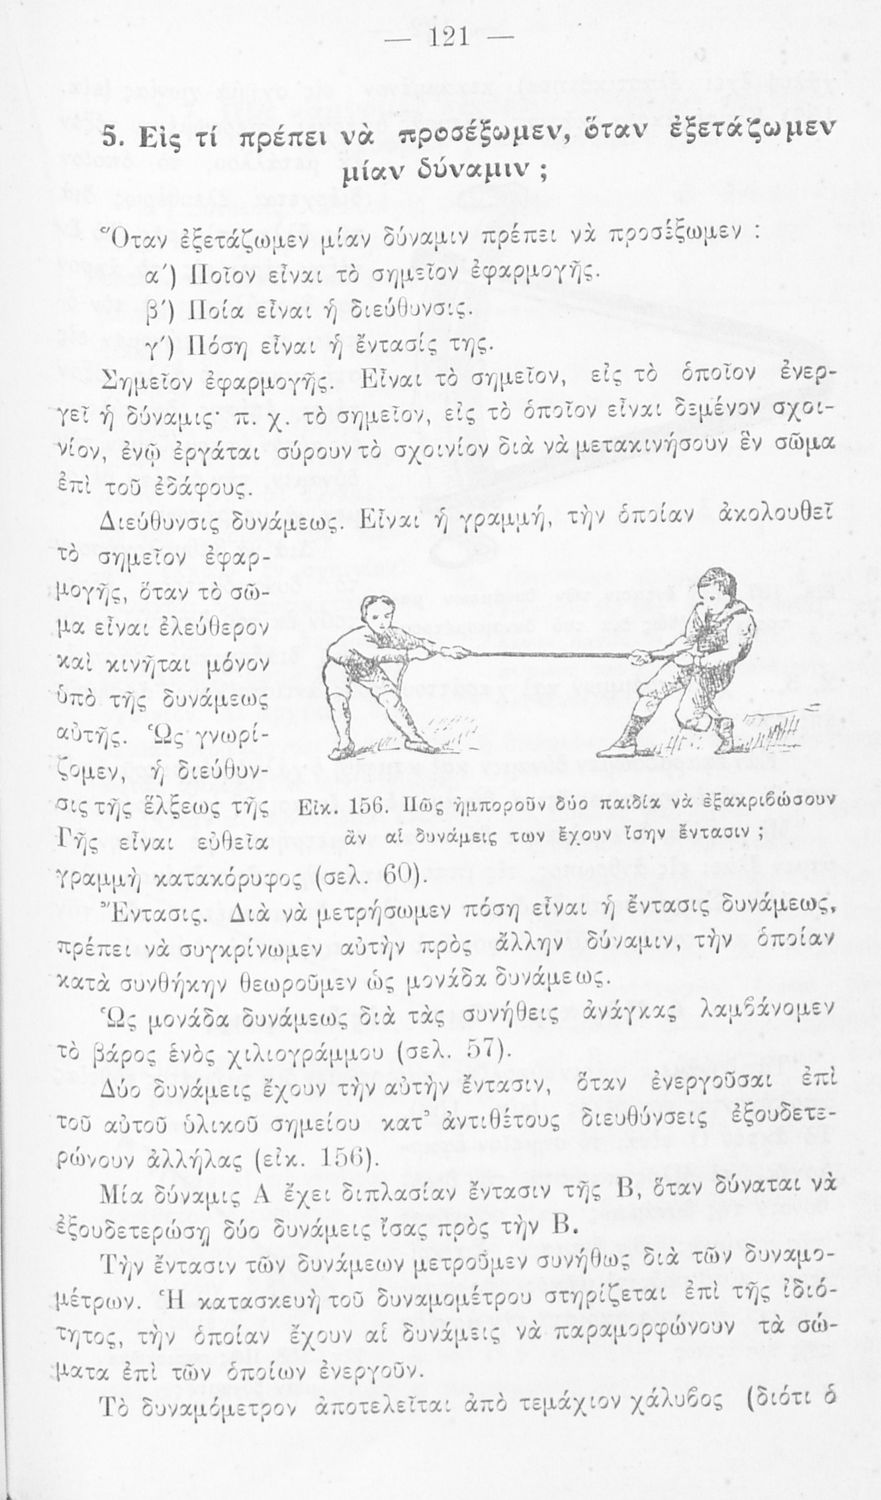 — 121 —
5. Εἰς τί πρέπει νὰ προσέξωμεν, ὅταν ἐξετάζωμεν
μίαν δύναμιν ;
Ὅταν ἐξετάζωμεν μίαν δύναμιν πρέπει νὰ προσέξωμεν :
α΄) Ποῖον εἶναι τὸ σημεῖον ἐφαρμογῆς.
β΄) Ποία εἶναι ἡ διεύθυνσις.
γ΄) Πόση εἶναι ἡ ἔντασίς της.
Σημεῖον ἐφαρμογῆς. Εἶναι τὸ σημεῖον, εἰς τὸ ὁποῖον ἐνερ-
γεῖ ἡ δύναμις· π. χ. τὸ σημεῖον, εἰς τὸ ὁποῖον εἶναι δεμένον σχοι-
νίον, ἐνῷ ἐργάται σύρουν τὸ σχοινίον διὰ νὰ μετακινήσουν ἓν σῶμα
ἐπὶ τοῦ ἐδάφους.
Διεύθυνσις δυνάμεως. Εἶναι ἡ γραμμή, τὴν ὁποίαν ἀκολουθεῖ
τὸ σημεῖον ἐφαρ-
μογῆς, ὅταν τὸ σῶ-
μα εἶναι ἐλεύθερον
καὶ κινῆται μόνον
ὑπὸ τῆς δυνάμεως
αὐτῆς. Ὡς γνωρί-
ζομεν, ἡ διεύθυν-
σις τῆς ἕλξεως τῆς
Γῆς εἶναι εὐθεῖα
γραμμὴ κατακόρυφος (σελ. 60).
Εἰκ. 156. Πῶς ἠμποροῦν δύο παιδία νὰ ἐξακριβώσουν
ἂν αἱ δυνάμεις των ἔχουν ἴσην ἔντασιν ;
Ἔντασις. Διὰ νὰ μετρήσωμεν πόση εἶναι ἡ ἔντασις δυνάμεως,
πρέπει νὰ συγκρίνωμεν αὐτὴν πρὸς ἄλλην δύναμιν, τὴν ὁποίαν
κατὰ συνθήκην θεωροῦμεν ὡς μονάδα δυνάμεως.
Ὡς μονάδα δυνάμεως διὰ τὰς συνήθεις ἀνάγκας λαμβάνομεν
τὸ βάρος ἑνὸς χιλιογράμμου (σελ. 57).
Δύο δυνάμεις ἔχουν τὴν αὐτὴν ἔντασιν, ὅταν ἐνεργοῦσαι ἐπὶ
τοῦ αὐτοῦ ὑλικοῦ σημείου κατ᾽ ἀντιθέτους διευθύνσεις ἐξουδετε-
ρώνουν ἀλλήλας (εἰκ. 156).
Μία δύναμις Α ἔχει διπλασίαν ἔντασιν τῆς Β, ὅταν δύναται νὰ
ἐξουδετερώσῃ δύο δυνάμεις ἴσας πρὸς τὴν Β.
Τὴν ἔντασιν τῶν δυνάμεων μετροῦμεν συνήθως διὰ τῶν δυναμο-
μέτρων. Ἡ κατασκευὴ τοῦ δυναμομέτρου στηρίζεται ἐπὶ τῆς ἰδιό-
τητος, τὴν ὁποίαν ἔχουν αἱ δυνάμεις νὰ παραμορφώνουν τὰ σώ-
ματα ἐπὶ τῶν ὁποίων ἐνεργοῦν.
Τὸ δυναμόμετρον ἀποτελεῖται ἀπὸ τεμάχιον χάλυβος (διότι ὁ